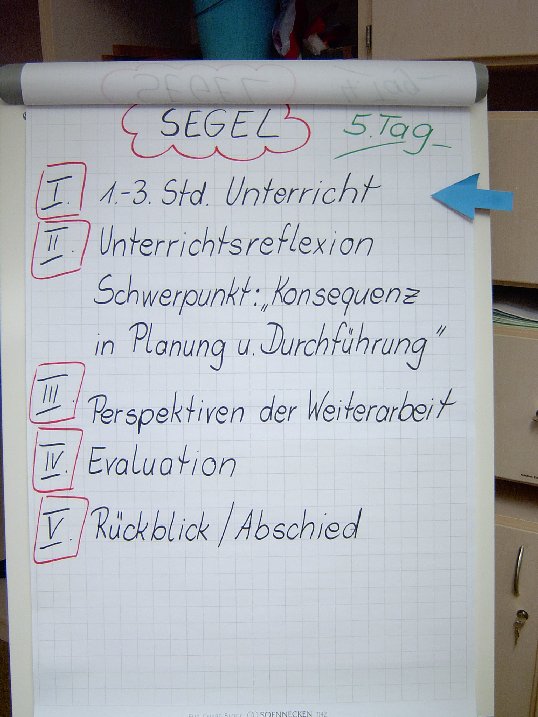 SEGEL 5. Tag
I. 1.-3. Std. Unterricht
II. Unterrichtsreflexion
Schwerpunkt: „Konsequenz
in Planung u. Durchführung"
III. Perspektiven der Weiterarbeit
IV. Evaluation
V. Rückblick / Abschied
SOENNECKEN